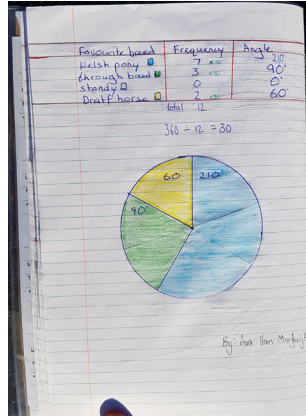 Favourite breed Frequency Angle
Welsh pony 7 ×30 210°
through breed 3 ×30 90°
standy 0 0°
Draff horse 2 ×30 60°
total 12
360 ÷ 12 = 30
60° 210°
90°
By:- Ana Van